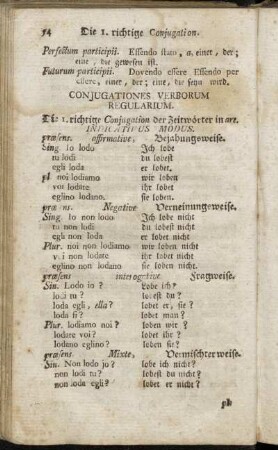 54 Die 1. richtige Conjugation.
Perfectum participii. Essendo stato, a. einer, der;
eine, die gewesen ist.
Futurum participii. Dovendo essere Essendo per
essere, einer, der; eine, die seyn wird.
CONJUGATIONES VERBORUM
REGULARIUM.
Die 1. richtige Conjugation der Zeitwörter in are.
INDICATIVUS MODUS.
præsent. affirmative, Bejahungsweise.
Sing. Io lodo Ich lobe
tu lodi du lobest
egli loda er lobet
pl noi lodiamo wir loben
voi lodate ihr lobet
eglino lodano. sie loben.
præsent. Negative Verneinungsweise.
Sing. Io non lodo Ich lobe nicht
tu non lodi du lobest nicht
egli non loda er lobet nicht
Plur. noi non lodiamo wir loben nicht
voi non lodate ihr lobet nicht
eglino non lodano sie loben nicht.
præsent interogative Fragweise.
Sin. Lodo io? Lobe ich?
lodi tu? lobest du?
loda egli, ella? lobet er, sie?
loda si? lobet man?
Plur. lodiamo noi? loben wir?
lodate voi? lobet ihr?
lodano eglino? loben sie?
præsent Mixte, Vermischter weise.
Sin. Non lodo jo? lobe ich nicht?
non lodi tu? lobest du nicht?
non loda egli? lobet er nicht?
pl.